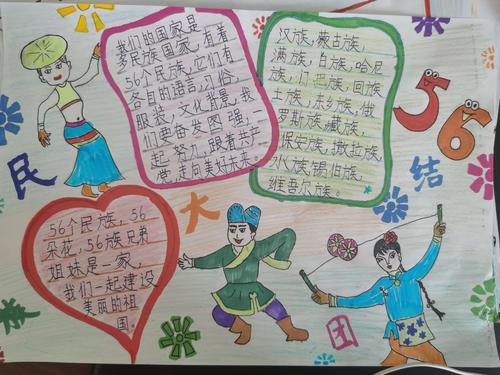 我们的国家是
多民族国家，有着
56个民族，它们有
各自的语言，习俗，
服装，文化背景，我
们要奋发图强，一
起努力，跟着共产
党，走向美好未来。
汉族，蒙古族，
满族，白族，哈尼
族，仡佬族，回族
土族，东乡族，俄
罗斯族，藏族，
保安族，撒拉族，
水族，锡伯族，
维吾尔族。
56
民
族
大
团
结
56个民族，56
朵花，56族兄弟
姐妹是一家，
我们一起建设
美丽的祖
国。